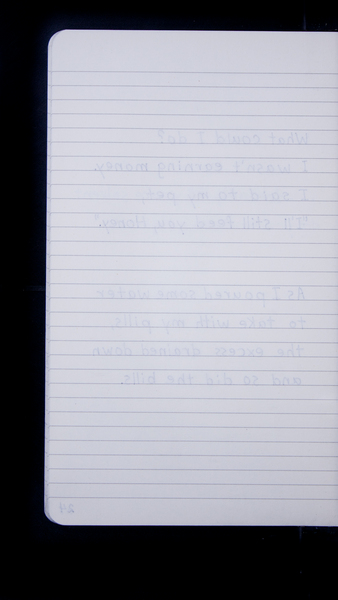 What could I do?
I wasn't earning money.
I said to my pet,
"I'll still feed you, Honey".
As I poured some water
to take with my pills,
the excess drained down
and so did the bills.